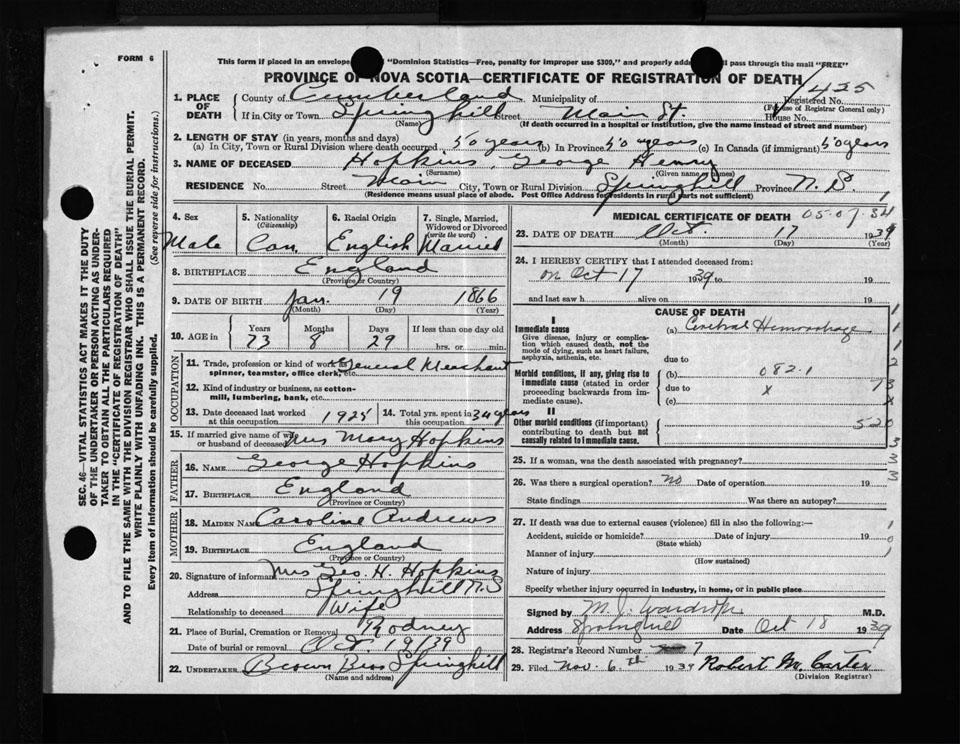 FORM 6
This form if placed in an envelope "Dominion Statistics—Free, penalty for improper use $300," and properly addre ll pass through the mail "FREE"
PROVINCE OF NOVA SCOTIA—CERTIFICATE OF REGISTRATION OF DEATH
1425
1. PLACE OF DEATH
County of Cumberland Municipality of Registered No.
(For use of Registrar General only)
If in City or Town Springhill Street Main St. House No.
(Name) (If death occurred in a hospital or institution, give the name instead of street and number)
2. LENGTH OF STAY (in years, months and days)
(a) In City, Town or Rural Division where death occurred 50 years (b) In Province 50 years (c) In Canada (if immigrant) 50 years
3. NAME OF DECEASED Hopkins, George Henry
(Surname) (Given name or names)
RESIDENCE No. Street Main City, Town or Rural Division Springhill Province N. S
(Residence means usual place of abode. Post Office Address for residents in rural parts not sufficient)
4. Sex
Male
5. Nationality
(Citizenship)
Can.
6. Racial Origin
English
7. Single, Married, Widowed or Divorced
(write the word)
Married
8. BIRTHPLACE England
(Province or Country)
9. DATE OF BIRTH Jan. 19 1866
(Month) (Day) (Year)
10. AGE in
Years Months Days If less than one day old
73 8 29 hrs. or min.
OCCUPATION
11. Trade, profession or kind of work as General Merchant
spinner, teamster, office clerk, etc.
12. Kind of industry or business, as cotton-
mill, lumbering, bank, etc.
13. Date deceased last worked at this occupation 1925
14. Total yrs. spent in this occupation 34 years
15. If married give name of wife or husband of deceased Mrs Mary Hopkins
FATHER
16. NAME George Hopkins
17. BIRTHPLACE England
MOTHER
18. MAIDEN NAME Caroline Andrews
19. BIRTHPLACE England
(Province or Country)
20. Signature of informant Mrs Geo. H. Hopkins
Address Springhill N.S
Relationship to deceased Wife
21. Place of Burial, Cremation or Removal Rodney
Date of burial or removal Oct. 19/39
22. UNDERTAKER Brown Bros Springhill
(Name and address)
MEDICAL CERTIFICATE OF DEATH 05.07.34
23. DATE OF DEATH Oct. 17 1939
(Month) (Day) (Year)
24. I HEREBY CERTIFY that I attended deceased from:
on Oct 17 1939 to 19
and last saw h alive on 19
CAUSE OF DEATH
I
Immediate cause (a) Cerebral Hemorrhage
Give disease, injury or complica-
tion which caused death, not the
mode of dying, such as heart failure,
asphyxia, asthenia, etc.
due to
Morbid conditions, if any, giving rise to
immediate cause (stated in order
proceeding backwards from im-
mediate cause).
(b) 082.1
due to x
(c)
II
Other morbid conditions (if important)
contributing to death but not
causally related to immediate cause.
520
25. If a woman, was the death associated with pregnancy?
26. Was there a surgical operation? no Date of operation 19
State findings Was there an autopsy?
27. If death was due to external causes (violence) fill in also the following:—
Accident, suicide or homicide? Date of injury 19
(State which)
Manner of injury
(How sustained)
Nature of injury
Specify whether injury occurred in industry, in home, or in public place
Signed by M. J. Wardrope M.D.
Address Springhill Date Oct 18 1939
28. Registrar's Record Number 7
29. Filed Nov. 6th 1939 Robert M. Carter
(Division Registrar)
SEC. 46—VITAL STATISTICS ACT MAKES IT THE DUTY
OF THE UNDERTAKER OR PERSON ACTING AS UNDER-
TAKER TO OBTAIN ALL THE PARTICULARS REQUIRED
IN THE "CERTIFICATE OF REGISTRATION OF DEATH"
AND TO FILE THE SAME WITH THE DIVISION REGISTRAR WHO SHALL ISSUE THE BURIAL PERMIT.
WRITE PLAINLY WITH UNFADING INK. THIS IS A PERMANENT RECORD.
Every item of information should be carefully supplied. (See reverse side for instructions.)